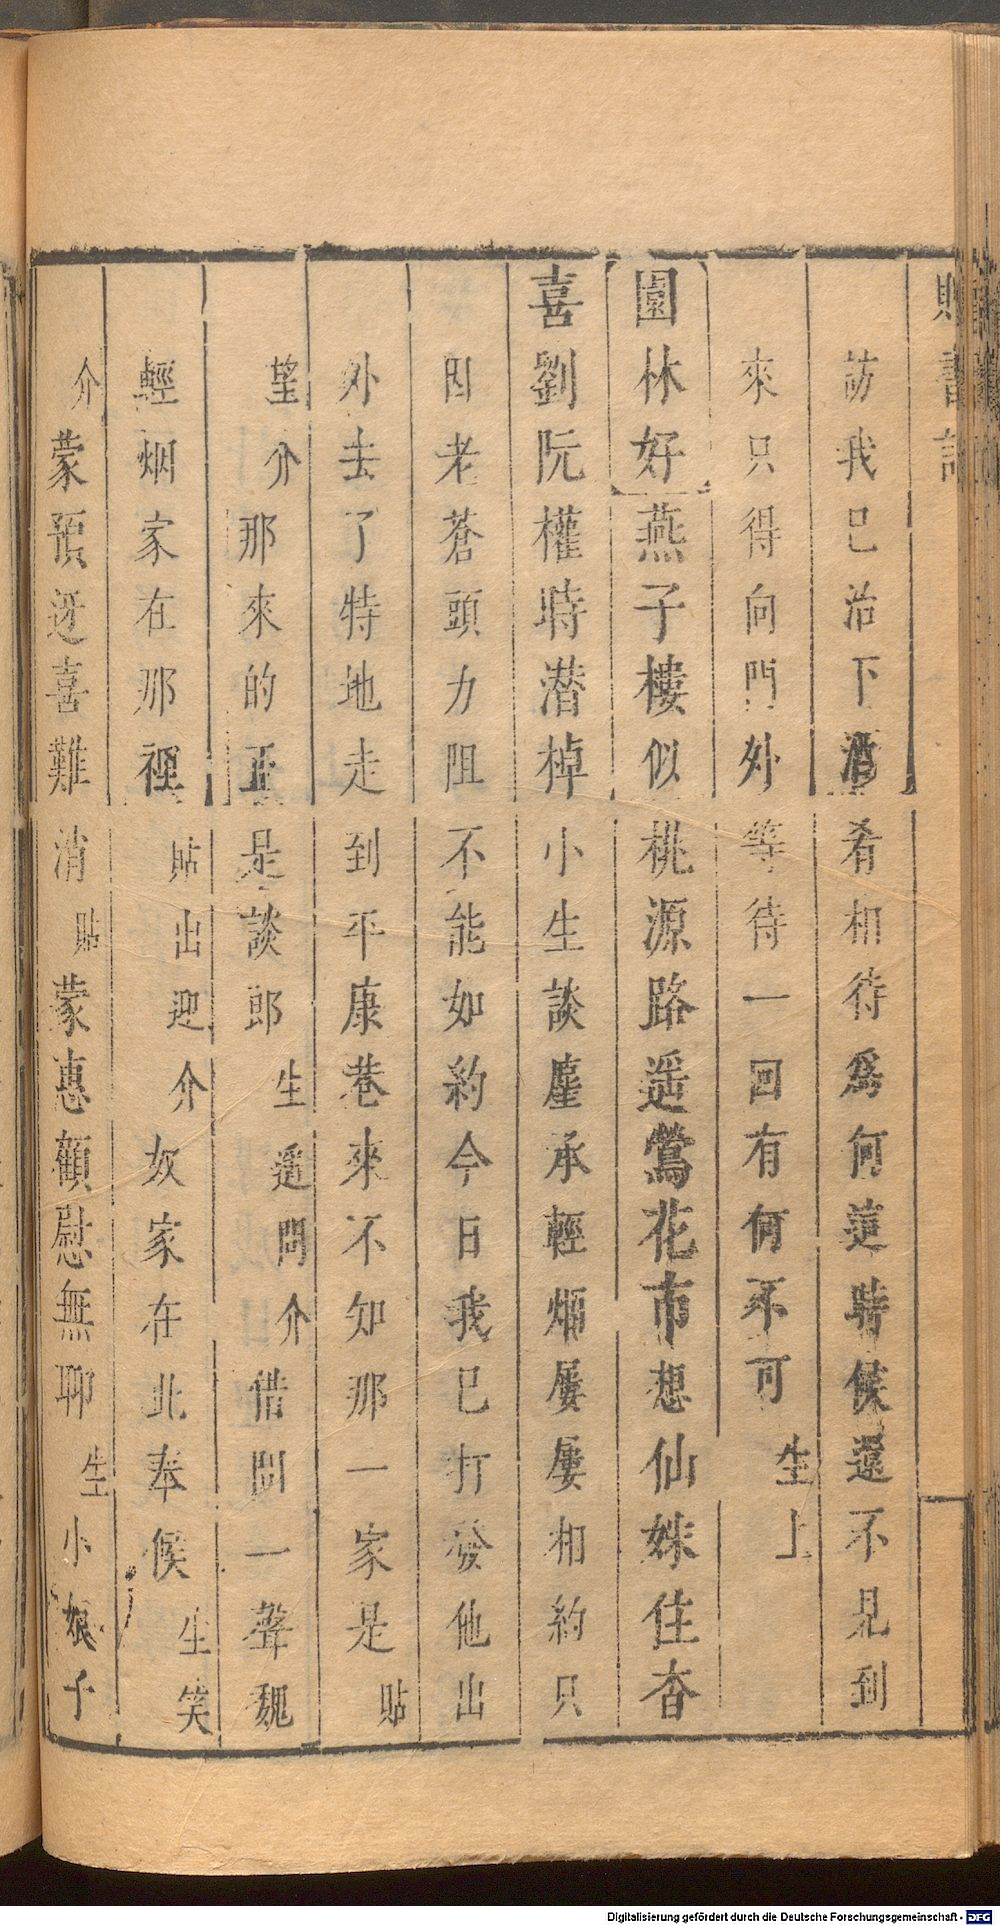 訪我已治下酒肴相待爲何這時候還不見到
來只得向門外等待一回有何不可生上
園林好燕子樓似桃源路遥鶯花市想仙姝住杳
喜劉阮權時潜棹小生談塵承輕烟屢屢相約只
因老蒼頭力阻不能如約今日我已打發他出
外去了特地走到平康巷來不知那一家是貼
望介那來的正是談郎生遥問介借問一聲魏
輕烟家在那裡貼出迎介奴家在此奉候生笑
介蒙預迓喜難消貼蒙惠顧慰無聊生小娘子
Digitalisierung gefördert durch die Deutsche Forschungsgemeinschaft - DFG